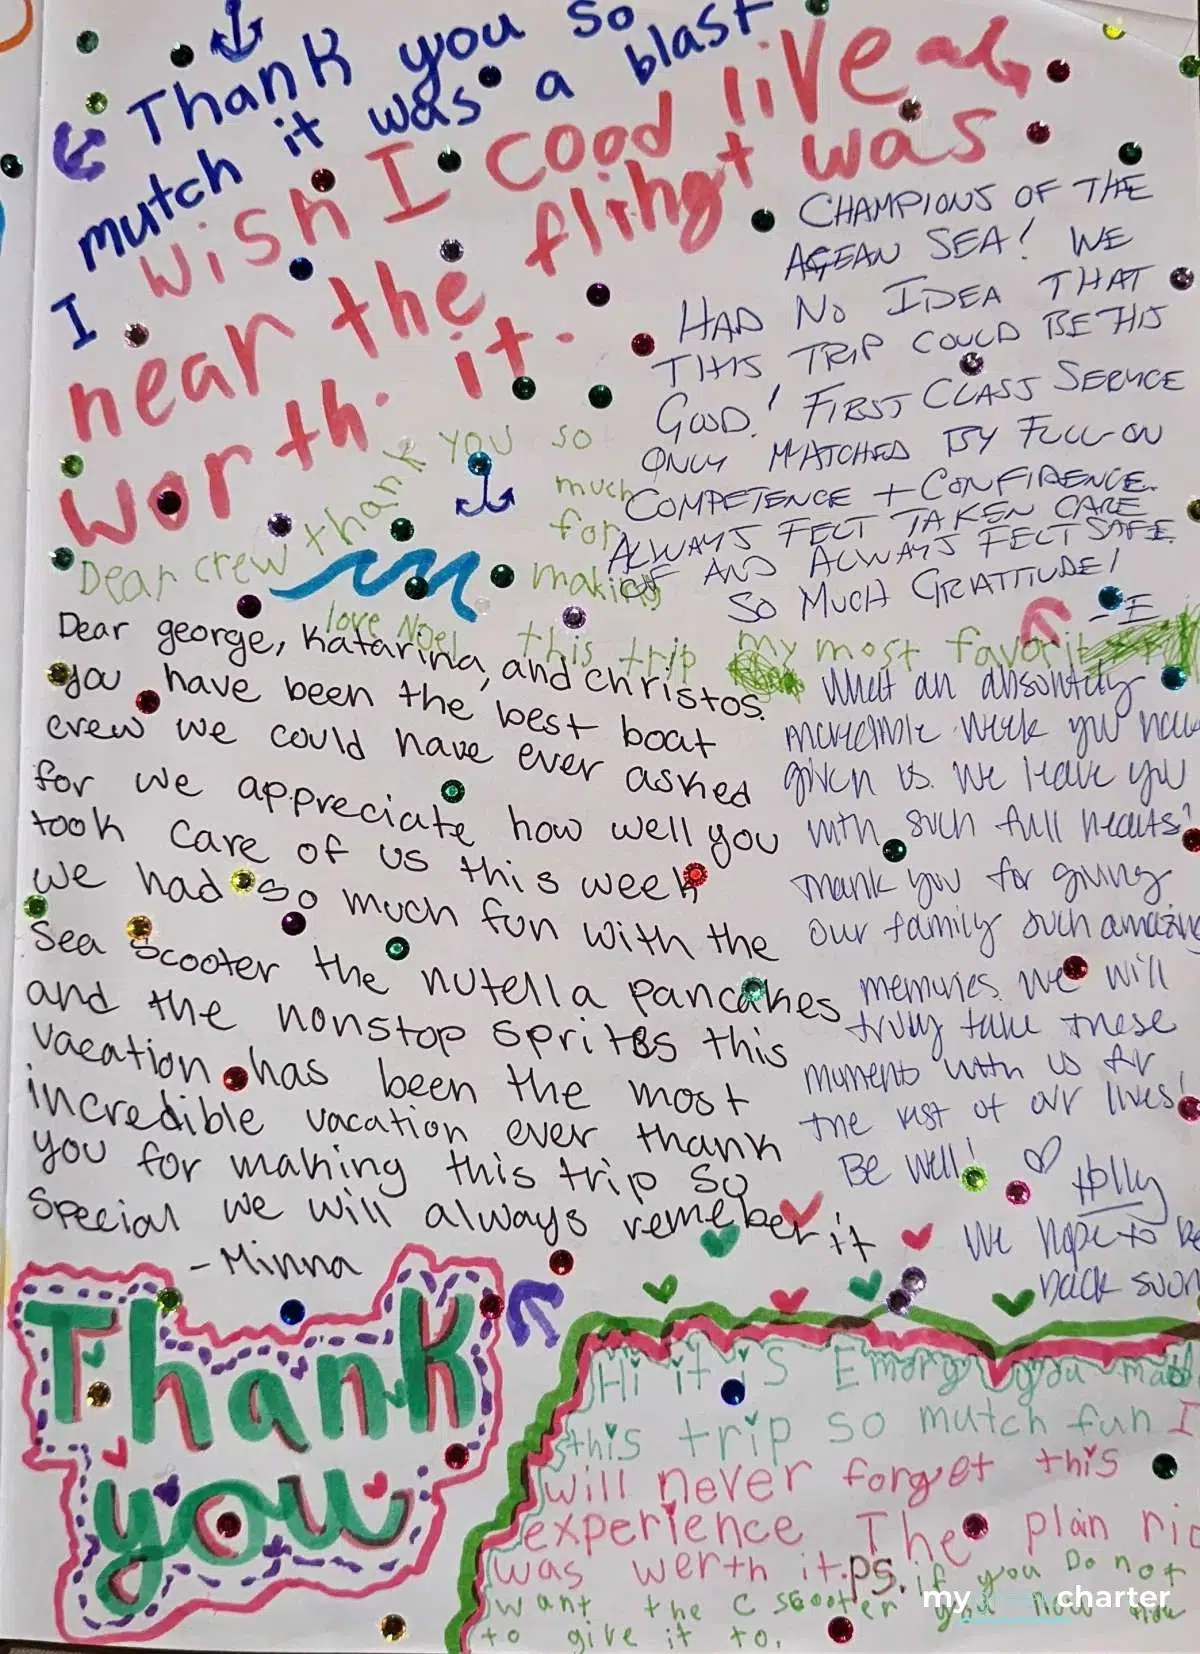 Thank you so
mutch it was a blast
I wish I cood live
near the flihgt was
worth it.
CHAMPIONS OF THE
AGEAN SEA! WE
HAD NO IDEA THAT
THIS TRIP COULD BE THIS
GOOD! FIRST CLASS SERVICE
ONLY MATCHED BY FULL-ON
COMPETENCE + CONFIDENCE.
ALWAYS FELT TAKEN CARE
OF AND ALWAYS FELT SAFE.
SO MUCH GRATTITUDE!
- E
Dear crew thank you so
much
for
making
this trip my most favorit
love Noel
Dear george, Katarina, and christos.
you have been the best boat
crew we could have ever asked
for we appreciate how well you
took care of us this week
we had so much fun with the
Sea Scooter the nutella pancakes
and the nonstop sprites this
vacation has been the most
incredible vacation ever thank
you for making this trip so
special we will always remeber it
- Minna
What an absolutely
incredible week you have
given us. We leave you
with such full hearts!
Thank you for giving
our family such amazing
memories. We will
truly take these
moments with us for
the rest of our lives!
Be well! ♡ Holly
We hope to be
back soon
Thank
you
Hi it is Emory you mad
this trip so mutch fun I
will never forget this
experience The plan ri
was werth it. ps. if you Do not
want the C scooter you now
to give it to.
my charter